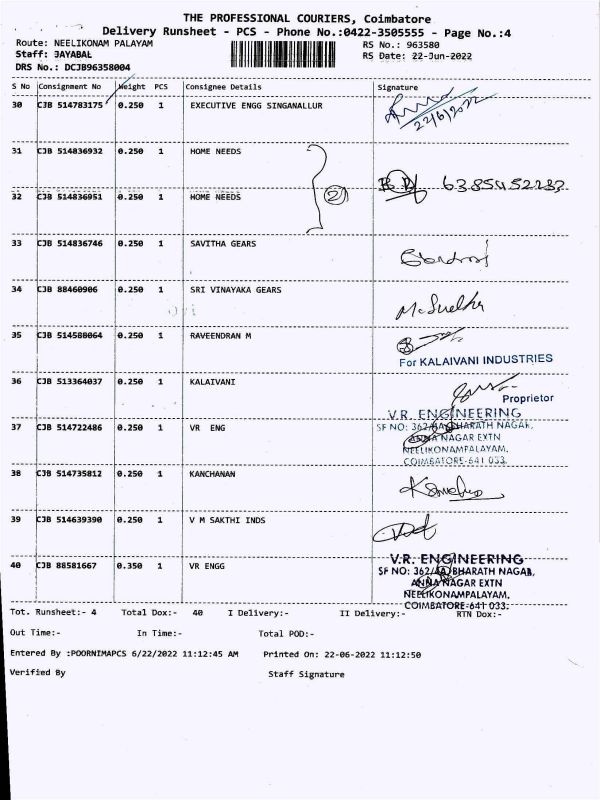 THE PROFESSIONAL COURIERS, Coimbatore
Delivery Runsheet - PCS - Phone No.:0422-3505555 - Page No.:4
Route: NEELIKONAM PALAYAM
RS No.: 963580
Staff: JAYABAL
RS Date: 22-Jun-2022
DRS No.: DCJB96358004
S No Consignment No Weight PCS Consignee Details Signature
30 CJB 514783175 0.250 1 EXECUTIVE ENGG SINGANALLUR
22/6/2022
31 CJB 514836932 0.250 1 HOME NEEDS
2
6385452232
32 CJB 514836951 0.250 1 HOME NEEDS
33 CJB 514836746 0.250 1 SAVITHA GEARS
34 CJB 88460906 0.250 1 SRI VINAYAKA GEARS
35 CJB 514588064 0.250 1 RAVEENDRAN M
For KALAIVANI INDUSTRIES
36 CJB 513364037 0.250 1 KALAIVANI
Proprietor
V.R. ENGINEERING
37 CJB 514722486 0.250 1 VR ENG
SF NO: 362/4A, BHARATH NAGAR,
ANNA NAGAR EXTN
NEELIKONAMPALAYAM,
COIMBATORE-641 033.
38 CJB 514735812 0.250 1 KANCHANAN
39 CJB 514639390 0.250 1 V M SAKTHI INDS
V.R. ENGINEERING
40 CJB 88581667 0.350 1 VR ENGG
SF NO: 362/4A, BHARATH NAGAR,
ANNA NAGAR EXTN
NEELIKONAMPALAYAM,
COIMBATORE-641 033.
Tot. Runsheet:- 4 Total Dox:- 40 I Delivery:- II Delivery:- RTN Dox:-
Out Time:- In Time:- Total POD:-
Entered By :POORNIMAPCS 6/22/2022 11:12:45 AM Printed On: 22-06-2022 11:12:50
Verified By Staff Signature